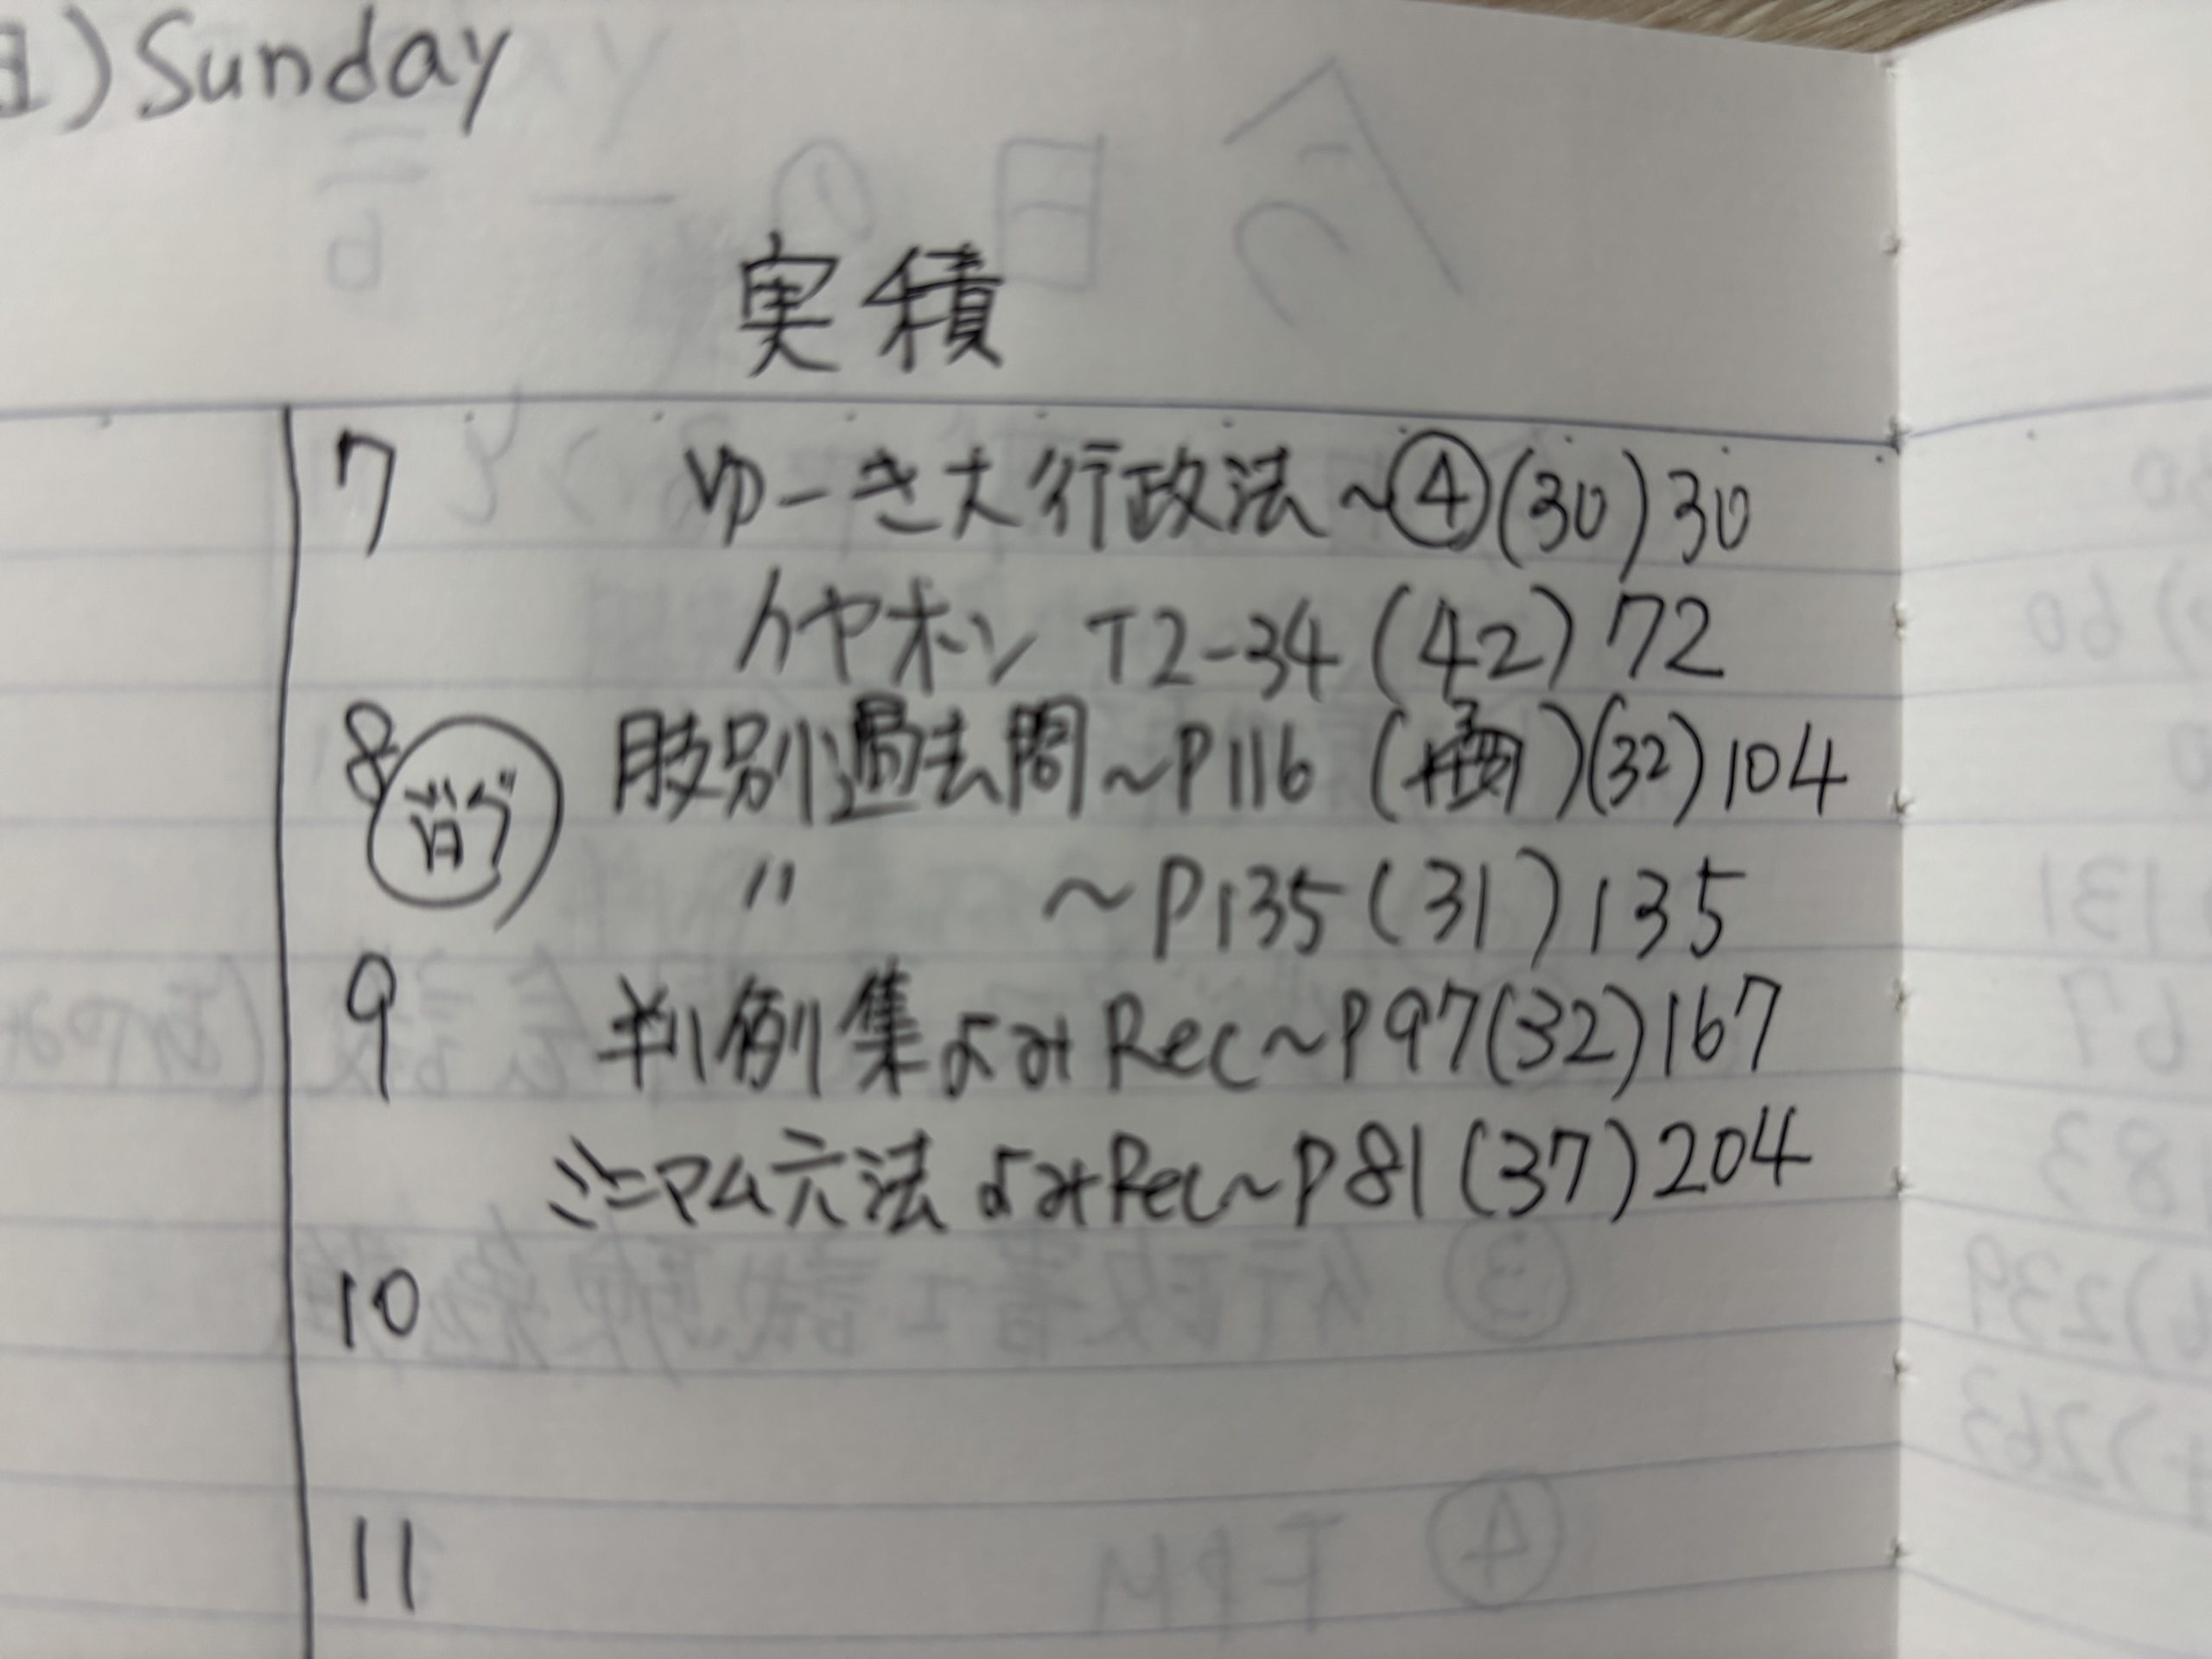 日) Sunday
実積
7 ゆーき大行政法~④(30)30
イヤホン T2-34(42)72
8 肢別過去問~P116 ( )(32)104
〃 ~P135(31)135
9 判例集よみRec~P97(32)167
ミニマム六法よみRec~P81(37)204
10
11